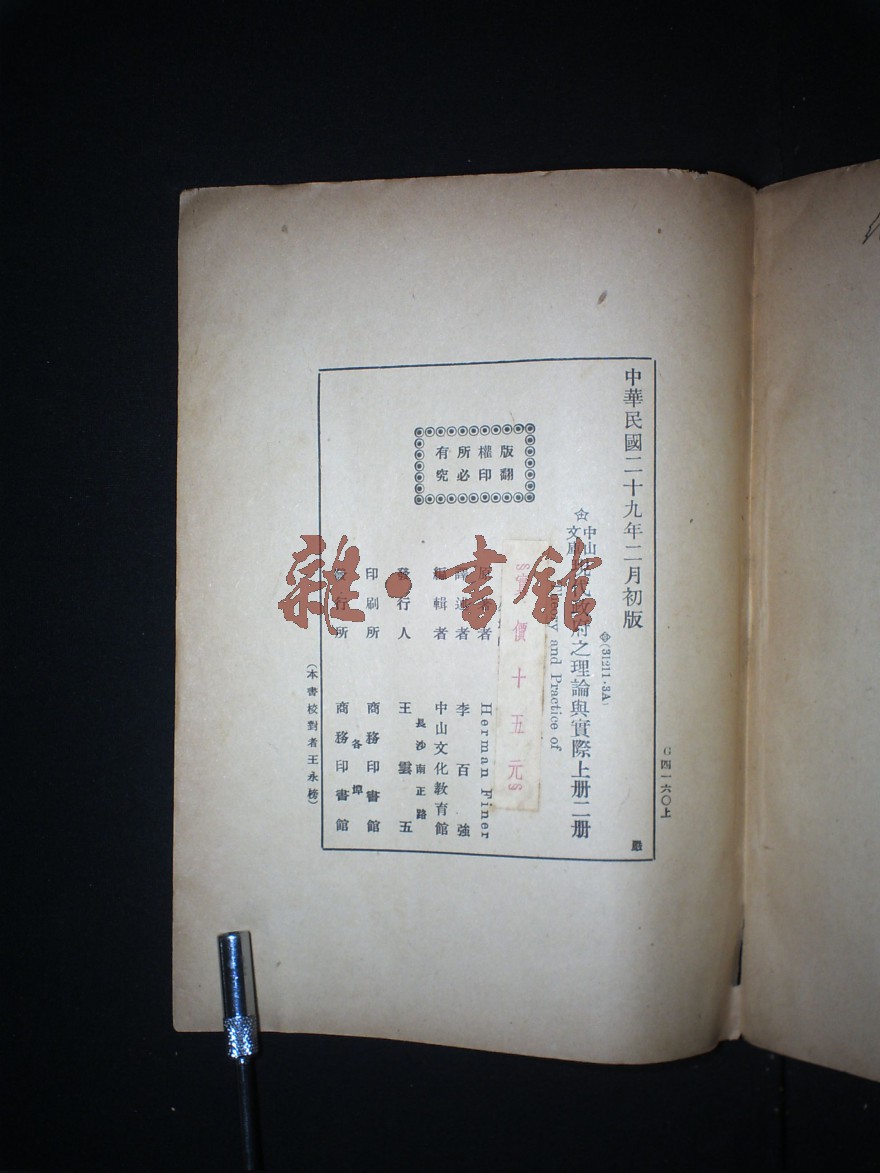 中華民國二十九年二月初版
(31211·3A)
中山文庫 現代政府之理論與實際上册二册
Theory and Practice of
實價十五元
版權所有
翻印必究
原著者 Herman Finer
譯述者 李百強
編輯者 中山文化教育館
發行人 王雲五
長沙南正路
印刷所 商務印書館
各埠
發行所 商務印書館
(本書校對者王永榜)
G四一六〇上
雜·書館